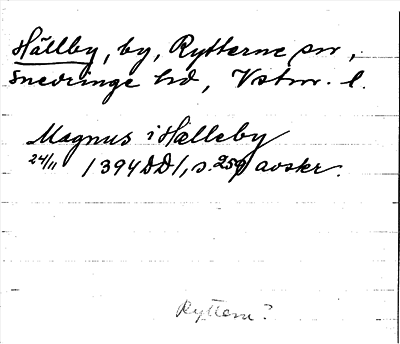 Hällby, by, Rytterne sn,
Snevringe hd, Vstm. l.
Magnus i Hælleby
24/11 1394 DD1, s. 259 avskr.
Ryttern?